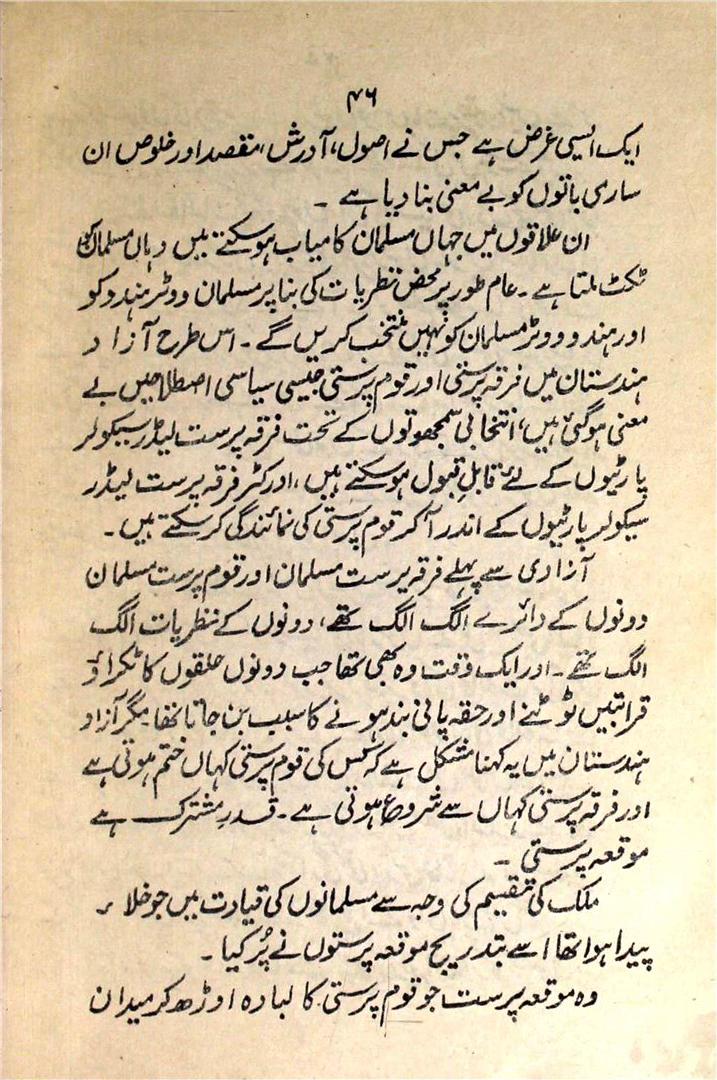 ۴۶
ایک ایسی غرض ہے جس نے اصول، آدرش، مقصد اور خلوص ان
ساری باتوں کو بے معنی بنا دیا ہے ۔
ان علاقوں میں جہاں مسلمان کامیاب ہو سکتے ہیں وہاں مسلمان کو
ٹکٹ ملتا ہے ۔ عام طور پر محض نظریات کی بنا پر مسلمان ووٹر ہندو کو
اور ہندو ووٹر مسلمان کو نہیں منتخب کریں گے ۔ اس طرح آزاد
ہندستان میں فرقہ پرستی اور قوم پرستی جیسی سیاسی اصطلاحیں بے
معنی ہو گئی ہیں، انتخابی سمجھوتوں کے تحت فرقہ پرست لیڈر سیکولر
پارٹیوں کے لئے قابلِ قبول ہو سکتے ہیں، اور کٹر فرقہ پرست لیڈر
سیکولر پارٹیوں کے اندر آ کر قوم پرستی کی نمائندگی کر سکتے ہیں ۔
آزادی سے پہلے فرقہ پرست مسلمان اور قوم پرست مسلمان
دونوں کے دائرے الگ الگ تھے، دونوں کے نظریات الگ
الگ تھے ۔ اور ایک وقت وہ بھی تھا جب دونوں حلقوں کا ٹکراؤ
قرابتیں ٹوٹنے اور حقہ پانی بند ہونے کا سبب بن جاتا تھا، مگر آزاد
ہندستان میں یہ کہنا مشکل ہے کہ کس کی قوم پرستی کہاں ختم ہوتی ہے
اور فرقہ پرستی کہاں سے شروع ہوتی ہے ۔ قدرِ مشترک ہے
موقعہ پرستی ۔
ملک کی تقسیم کی وجہ سے مسلمانوں کی قیادت میں جو خلاء
پیدا ہوا تھا اسے بتدریج موقعہ پرستوں نے پُر کیا ۔
وہ موقعہ پرست جو قوم پرستی کا لبادہ اوڑھ کر میدان